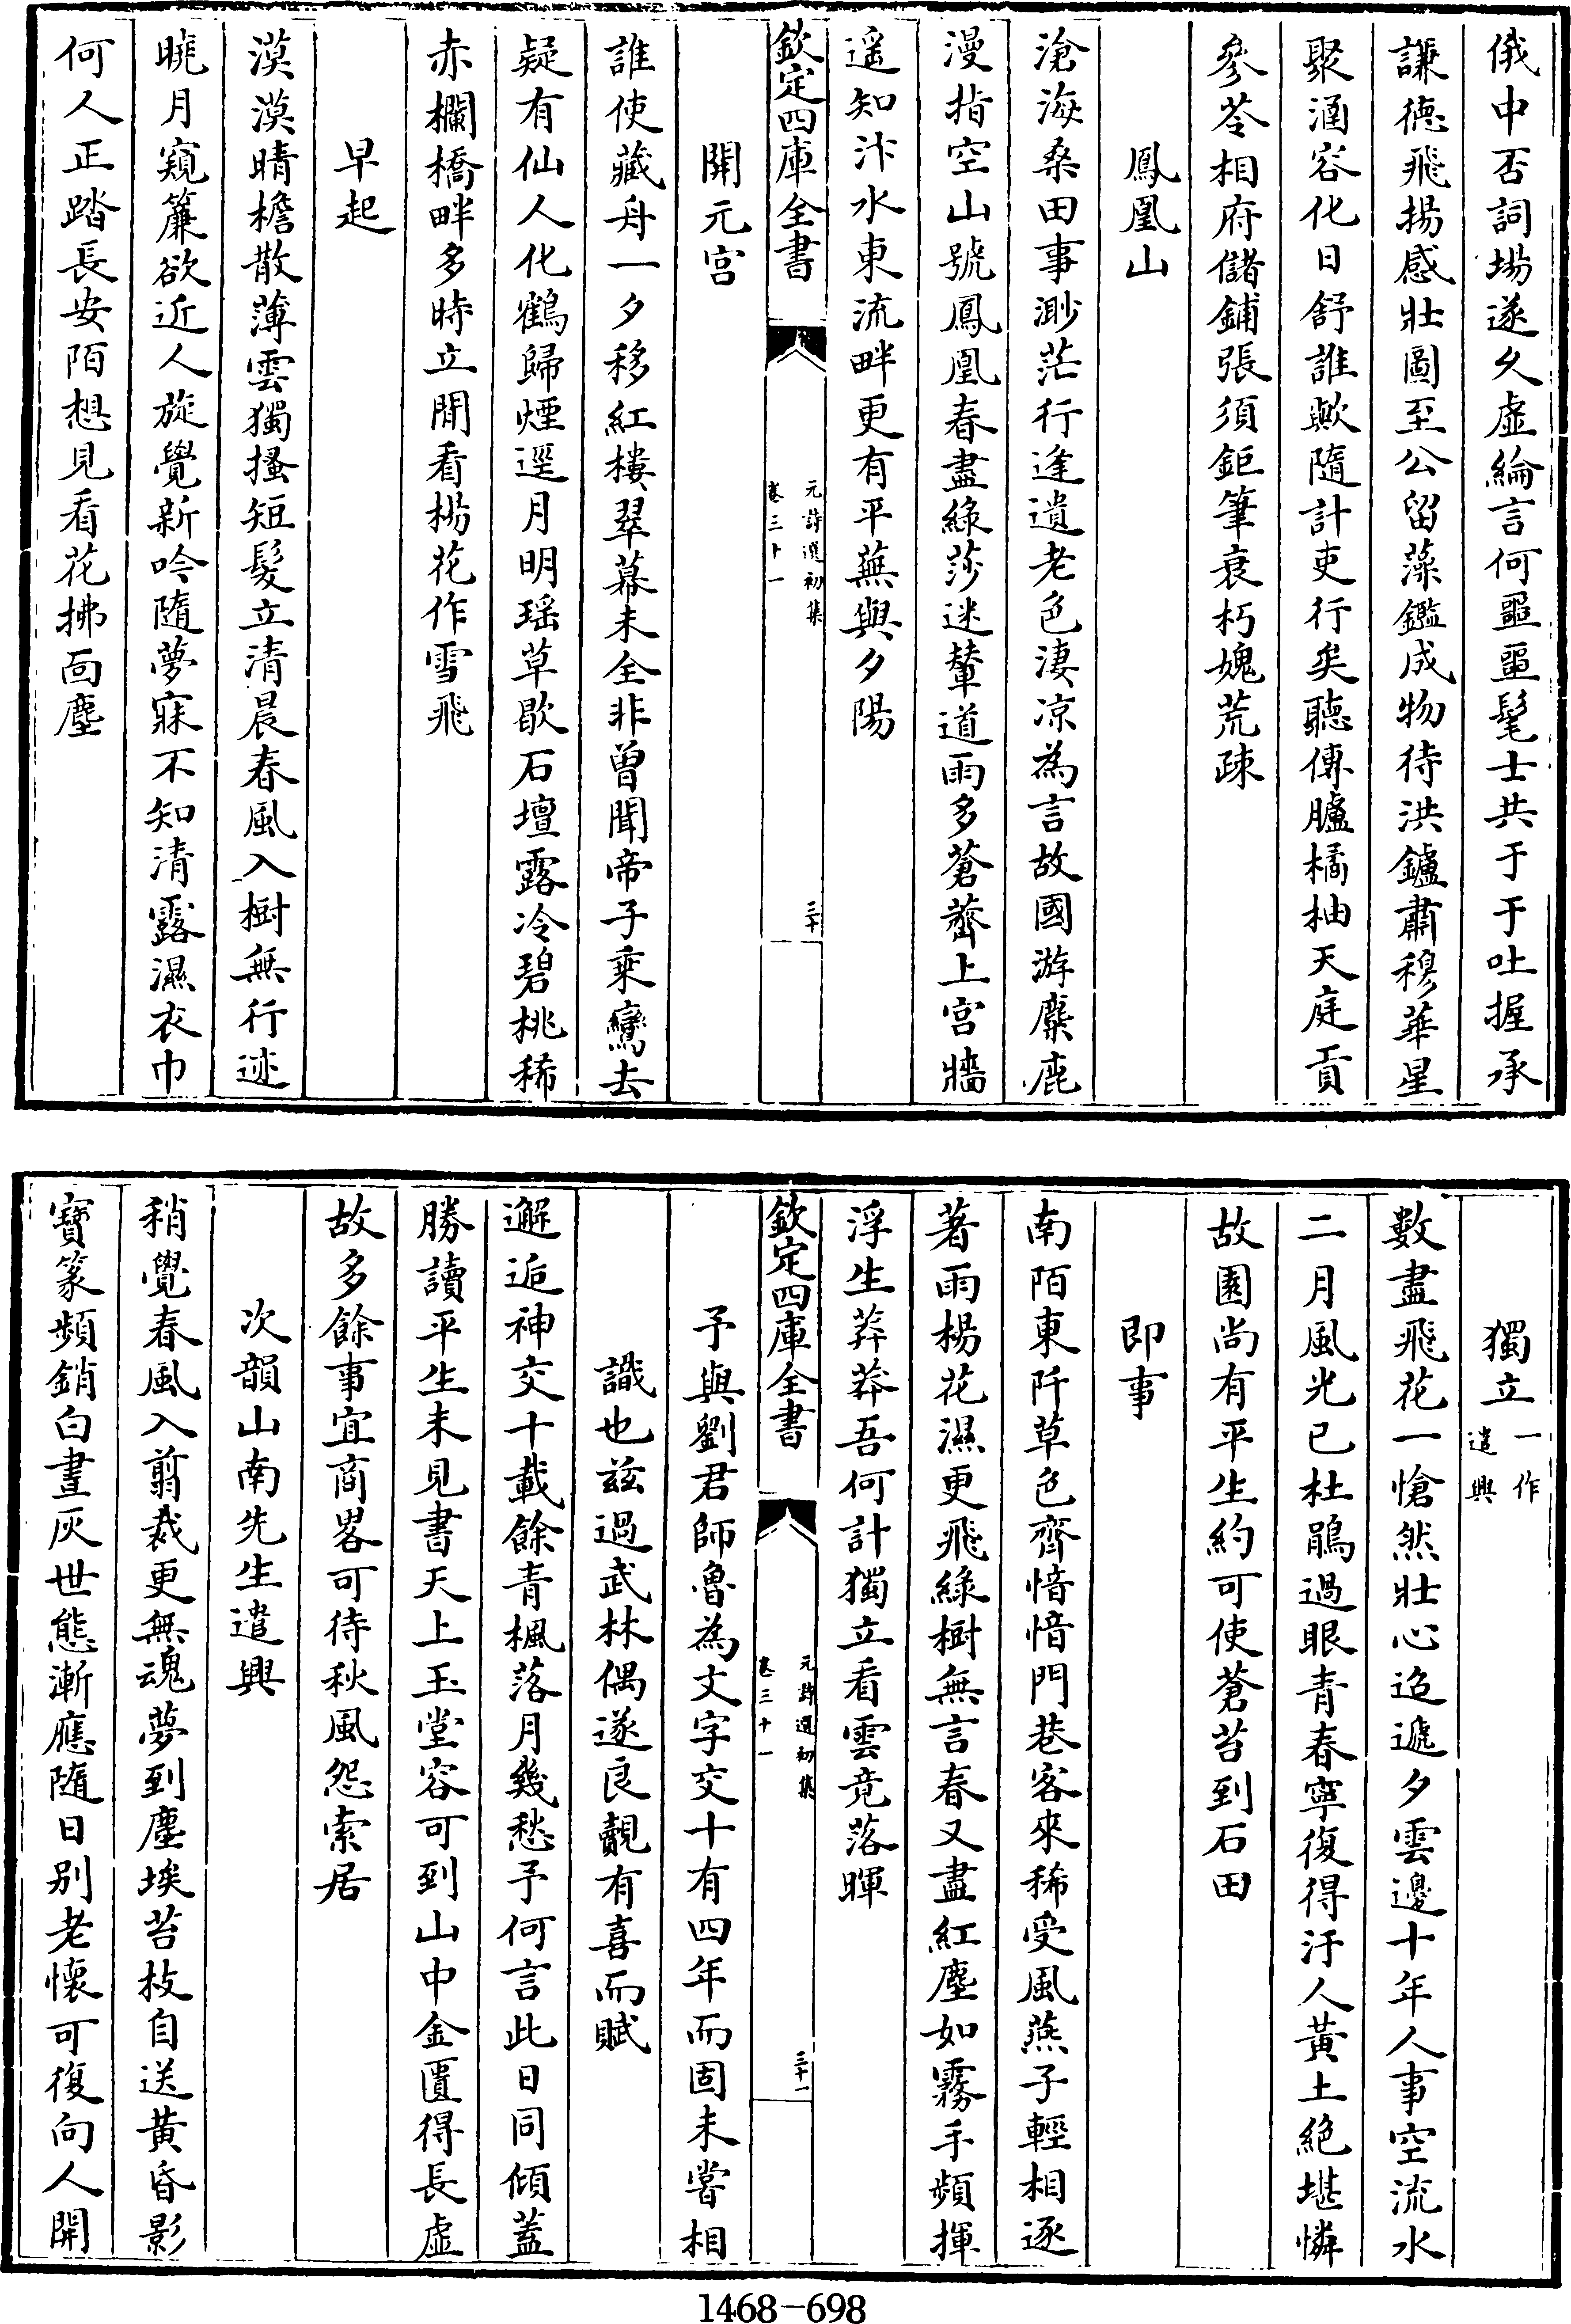 俄中否詞場遂久虛綸言何噩噩髦士共于于吐握承
謙德飛揚感壯圖至公留藻鑑成物待洪鑪肅穆華星
聚涵容化日舒誰歟隨計吏行矣聽傳臚橘柚天庭貢
參苓相府儲鋪張須鉅筆衰朽媿荒疎
鳳凰山
滄海桑田事渺茫行逢遺老色淒凉為言故國游麋鹿
漫指空山號鳳凰春盡綠莎迷輦道雨多蒼薺上宮牆
遥知汴水東流畔更有平蕪與夕陽
欽定四庫全書
元詩選初集
卷三十一
三十
開元宮
誰使藏舟一夕移紅樓翠幕未全非曾聞帝子乘鸞去
疑有仙人化鶴歸煙逕月明瑶草歇石壇露冷碧桃稀
赤欄橋畔多時立閒看楊花作雪飛
早起
漠漠晴檐散薄雲獨搔短髮立清晨春風入樹無行迹
曉月窺簾欲近人旋覺新吟隨夢寐不知清露濕衣巾
何人正踏長安陌想見看花拂面塵
獨立一作遣興
數盡飛花一愴然壯心迢遞夕雲邊十年人事空流水
二月風光已杜鵑過眼青春寧復得汙人黃土絕堪憐
故園尚有平生約可使蒼苔到石田
即事
南陌東阡草色齊愔愔門巷客來稀受風燕子輕相逐
著雨楊花濕更飛綠樹無言春又盡紅塵如霧手頻揮
浮生莽莽吾何計獨立看雲竟落暉
欽定四庫全書
元詩選初集
卷三十一
三十一
予與劉君師魯為文字交十有四年而固未嘗相
識也兹過武林偶遂良覿有喜而賦
邂逅神交十載餘青楓落月幾愁予何言此日同傾蓋
勝讀平生未見書天上玉堂容可到山中金匱得長虛
故多餘事宜商畧可待秋風怨索居
次韻山南先生遣興
稍覺春風入翦裁更無魂夢到塵埃苔枝自送黃昏影
寶篆頻銷白晝灰世態漸應隨日别老懷可復向人開
1468-698